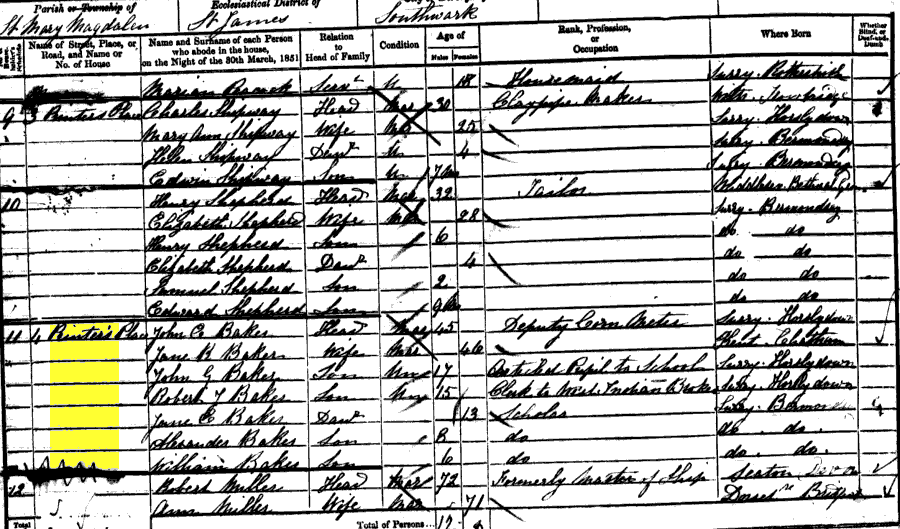 Parish or Township of Ecclesiastical District of
St. Mary Magdalen St James Southwark
Name of Street, Place, or Road, and Name or No. of House
Name and Surname of each Person who abode in the house, on the Night of the 30th March, 1851
Relation to Head of Family
Condition
Age of
Males Females
Rank, Profession, or Occupation
Where Born
Whether Blind, or Deaf-and-Dumb
Marian Servt U 18 Housemaid Surry
9 3 Printer's Place Charles Shipway Head Mar 30 Claypipe Maker
Mary Ann Shipway Wife Mar 25 Surry Horslydown
Helen Shipway Daur U 4 Surry Bermondsey
Edwin Shipway Son U 7 Surry Bermondsey
10 Henry Shepherd Head Mar 32 Tailor Middlesex Bethnal Gn
Elizabeth Shepherd Wife Mar 28 Surry Bermondsey
Henry Shepherd Son 6 do do
Elizabeth Shepherd Daur 4 do do
Samuel Shepherd Son 2 do do
Edward Shepherd Son 9 do do
11 4 Printer's Place John C Baker Head Mar 45 Deputy Corn Meter Surry Horslydown
Jane B Baker Wife Mar 46 Kent
John G Baker Son Um 17 Articled Pupil to School Surry Horslydown
Robert T Baker Son Um 15 Clerk to West Indian Broker Surry Horslydown
Jane C Baker Daur 13 Scholar Surry Bermondsey
Alexander Baker Son 8 do do do
William Baker Son 6 do do do
12 Robert Miller Head Mar 72 Formerly Master of Ship Seaton Devon
Ann Miller Wife Mar 71 Dorset Bridport
Total
Total of Persons...